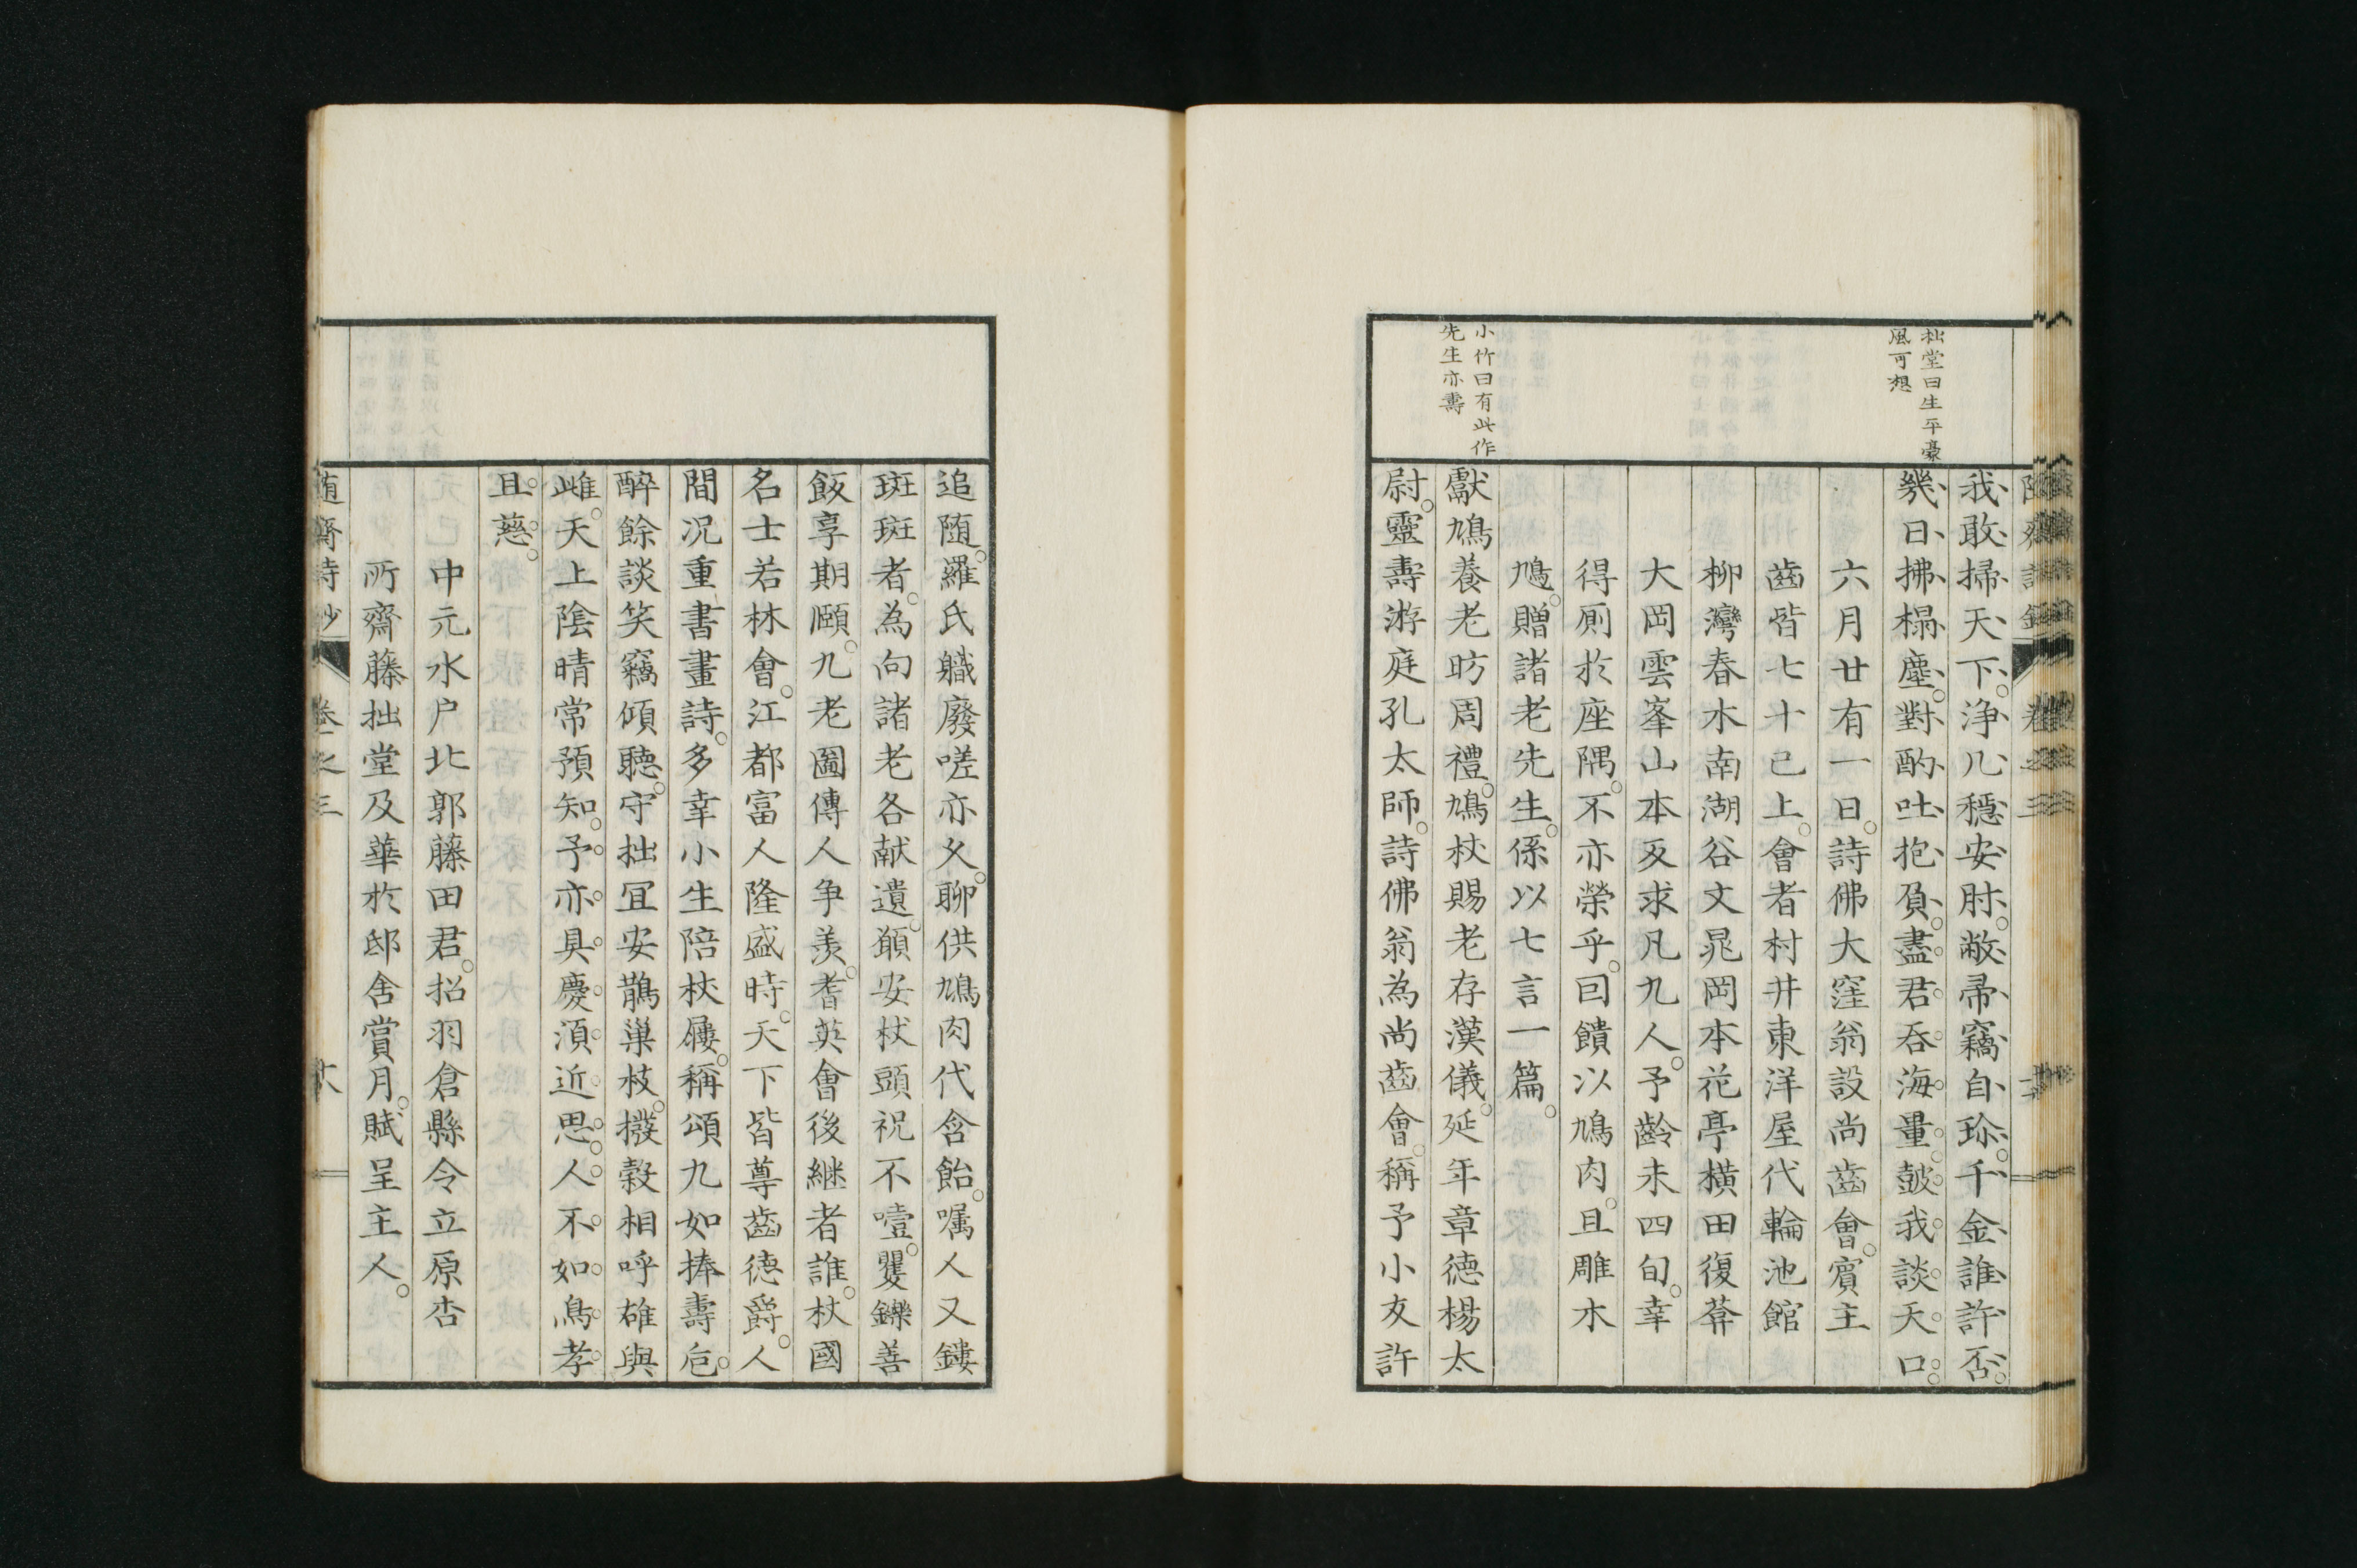 拙堂曰生平豪
風可想
小竹曰有此作
先生亦壽
我敢掃天下淨几穩安肘敝帚竊自珎千金誰許否
幾日拂榻塵對酌吐抱負盡君吞海量皷我談天口
六月廿有一日詩佛大窪翁設尚齒會賓主
齒皆七十已上會者村井東洋屋代輪池館
柳灣春木南湖谷文晁岡本花亭橫田復葊
大岡雲峯山本亥求凡九人予齡未四旬幸
得厠於座隅不亦榮乎囙饋以鳩肉且雕木
鳩贈諸老先生係以七言一篇
獻鳩養老昉周禮鳩杖賜老存漢儀延年章德楊太
尉靈壽游庭孔太師詩佛翁為尚齒會稱予小友許
追随羅氏軄廢嗟亦久聊供鳩肉代含飴嘱人又鏤
斑斑者為向諸老各献遺願安杖頭祝不噎矍鑠善
飯享期頤九老圖傳人争羨耆英會後継者誰杖國
名士若林會江都富人隆盛時天下皆尊齒德爵人
間况重書畫詩多幸小生陪杖屨稱頌九如捧壽巵
醉餘談笑竊傾聽守拙冝安鵲巢枝撥穀相呼雄與
雌天上陰晴常預知予亦具慶湏近思人不如鳥孝
且慈
中元水户北郭藤田君招羽倉縣令立原杏
所齋藤拙堂及華於邸舍賞月賦呈主人
随齋詩抄　卷之三